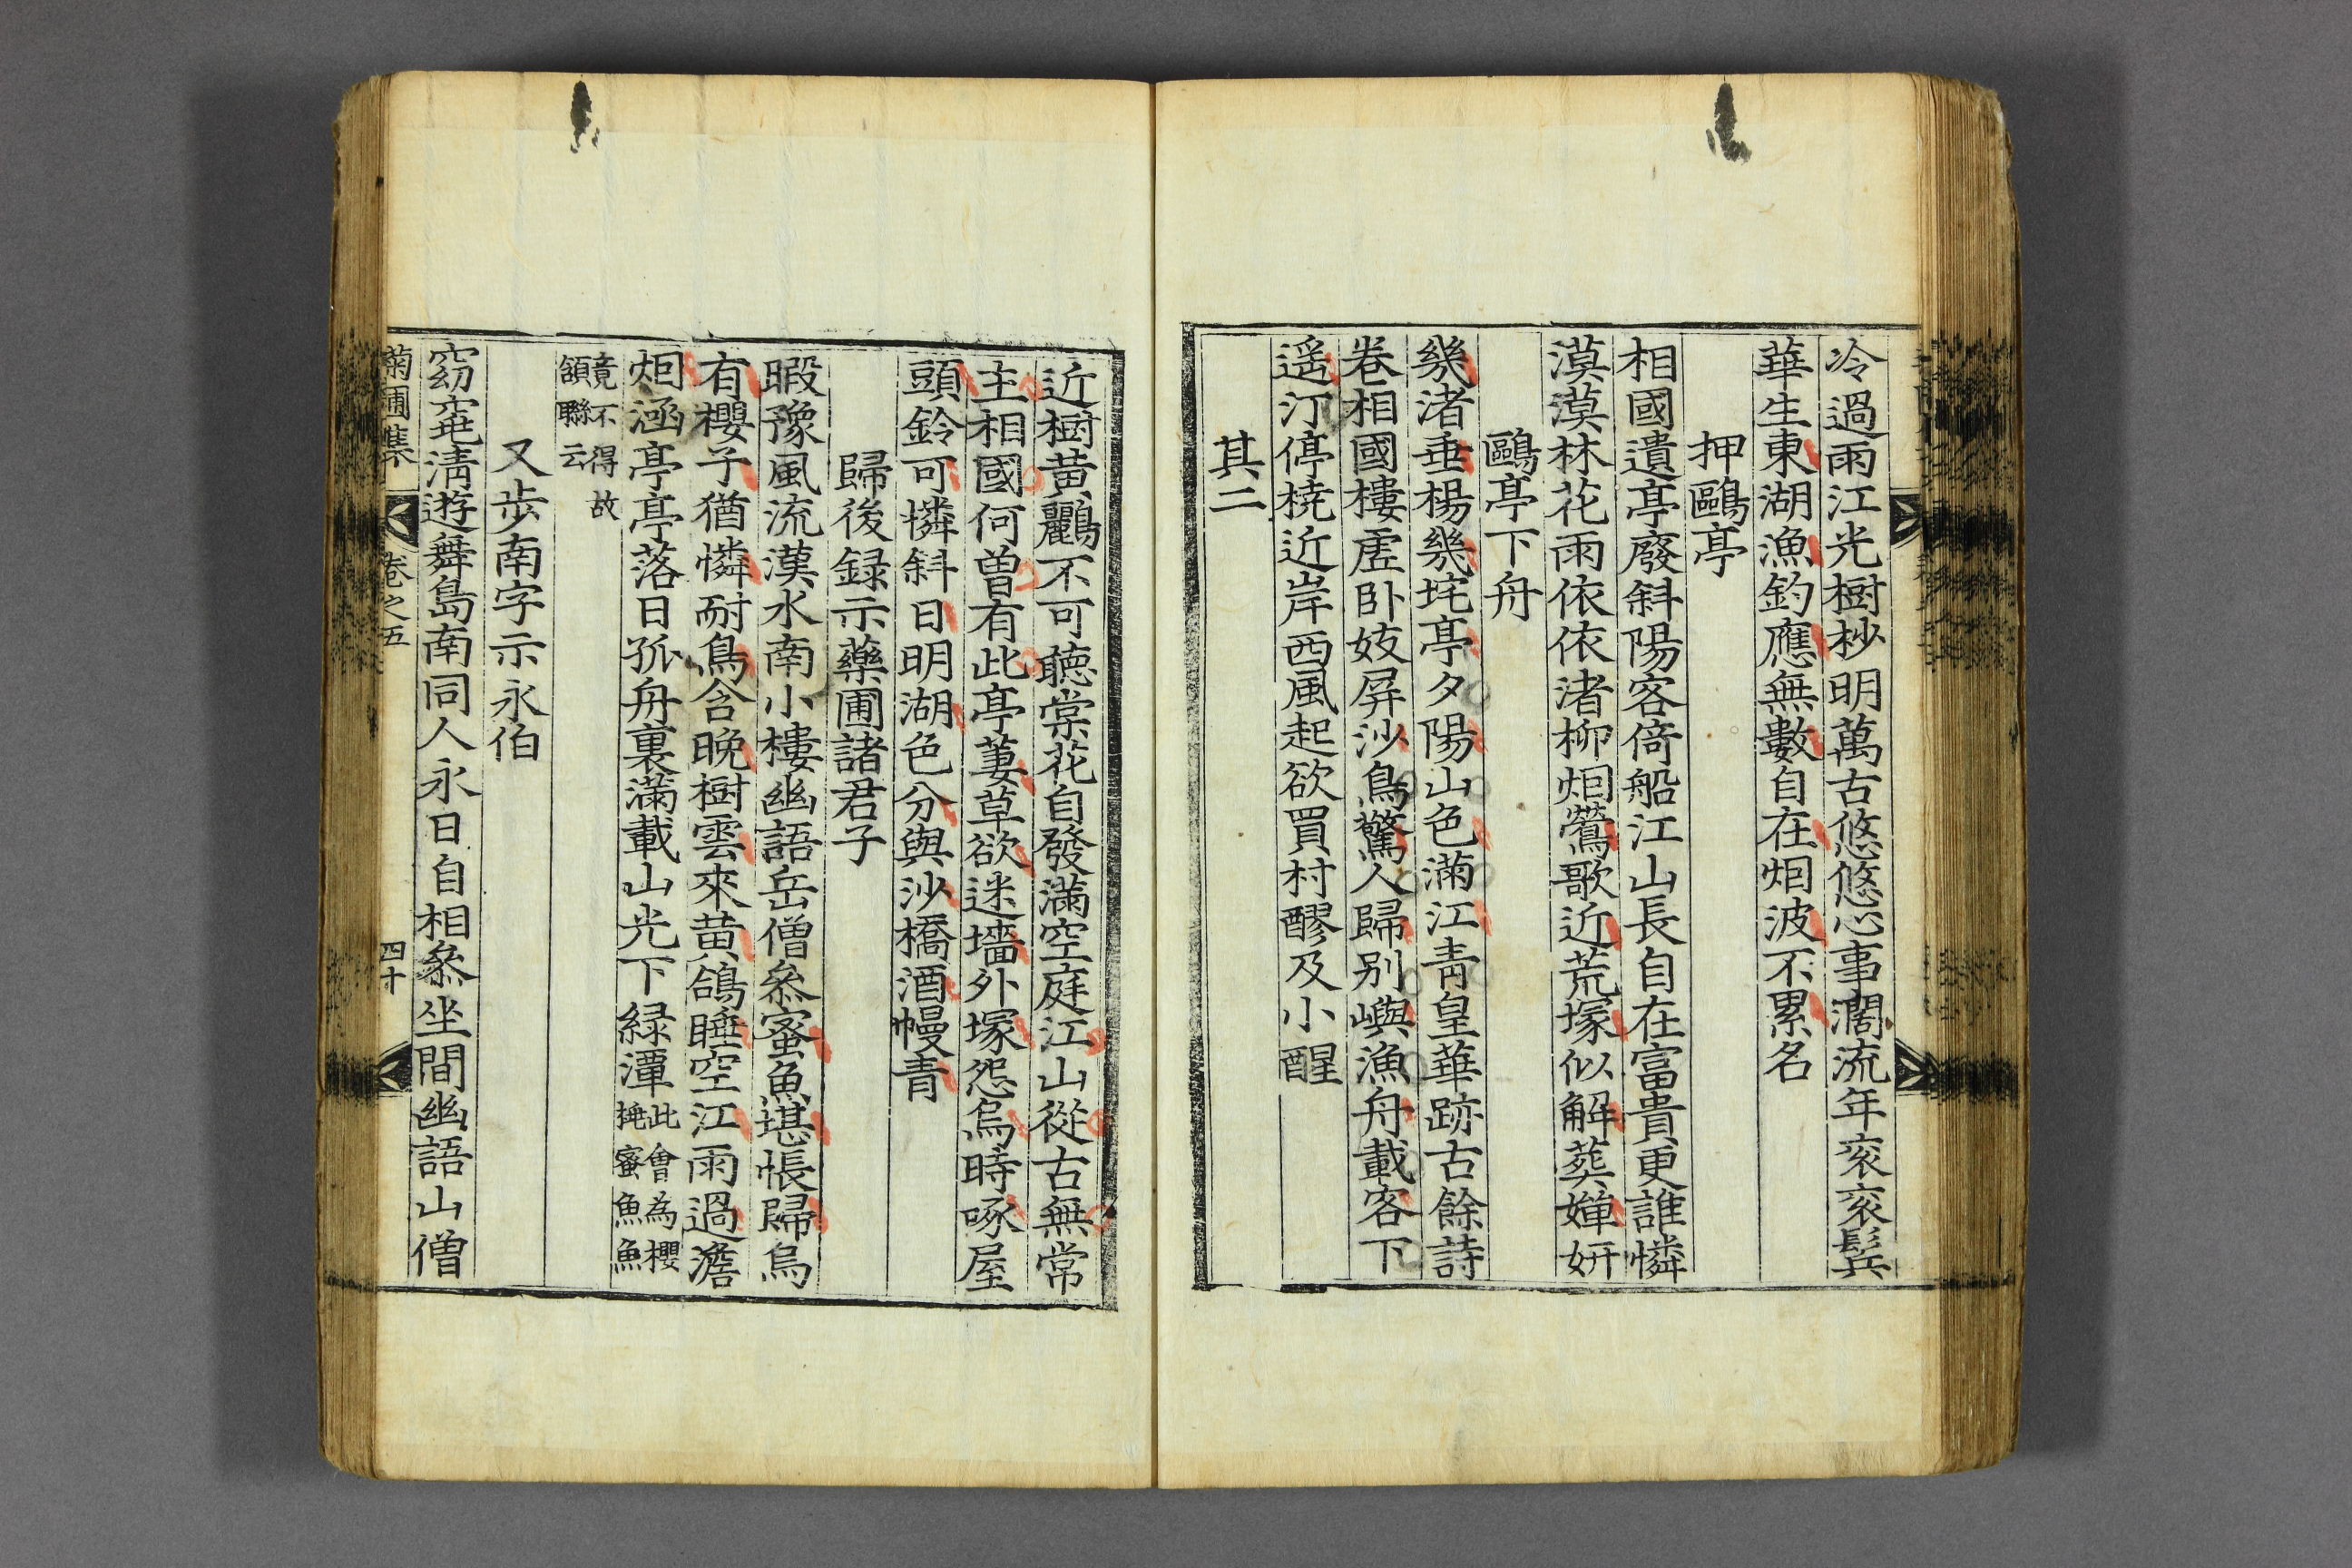 冷過雨江光樹杪明萬古悠悠心事濶流年衮衮鬂
華生東湖漁釣應無數自在烟波不累名
押鷗亭
相國遺亭廢斜陽客倚船江山長自在富貴更誰憐
漠漠林花雨依依渚柳烟鶯歌近荒塚似解葬嬋妍
鷗亭下舟
幾渚垂楊幾垞亭夕陽山色滿江青皇華跡古餘詩
卷相國樓虛卧妓屏沙鳥驚人歸别嶼漁舟載客下
遥汀停橈近岸西風起欲買村醪及小醒
其二
近樹黄鸝不可聽棠花自發滿空庭江山從古無常
主相國何曽有此亭萋草欲迷墻外塚怨烏時啄屋
頭鈴可憐斜日明湖色分與沙橋酒幔青
歸後録示藥圃諸君子
暇豫風流漢水南小樓幽語岳僧叅蜜魚堪悵歸烏
有櫻子猶憐耐鳥含晩樹雲來黄鴿睡空江雨過澹
烟涵亭亭落日孤舟裏滿載山光下緑潭此會為櫻
捶蜜魚魚
竟不得故
頷聯云
又歩南字示永伯
窈窕清遊舞島南同人永日自相叅坐間幽語山僧
菊圃集 卷之五 四十